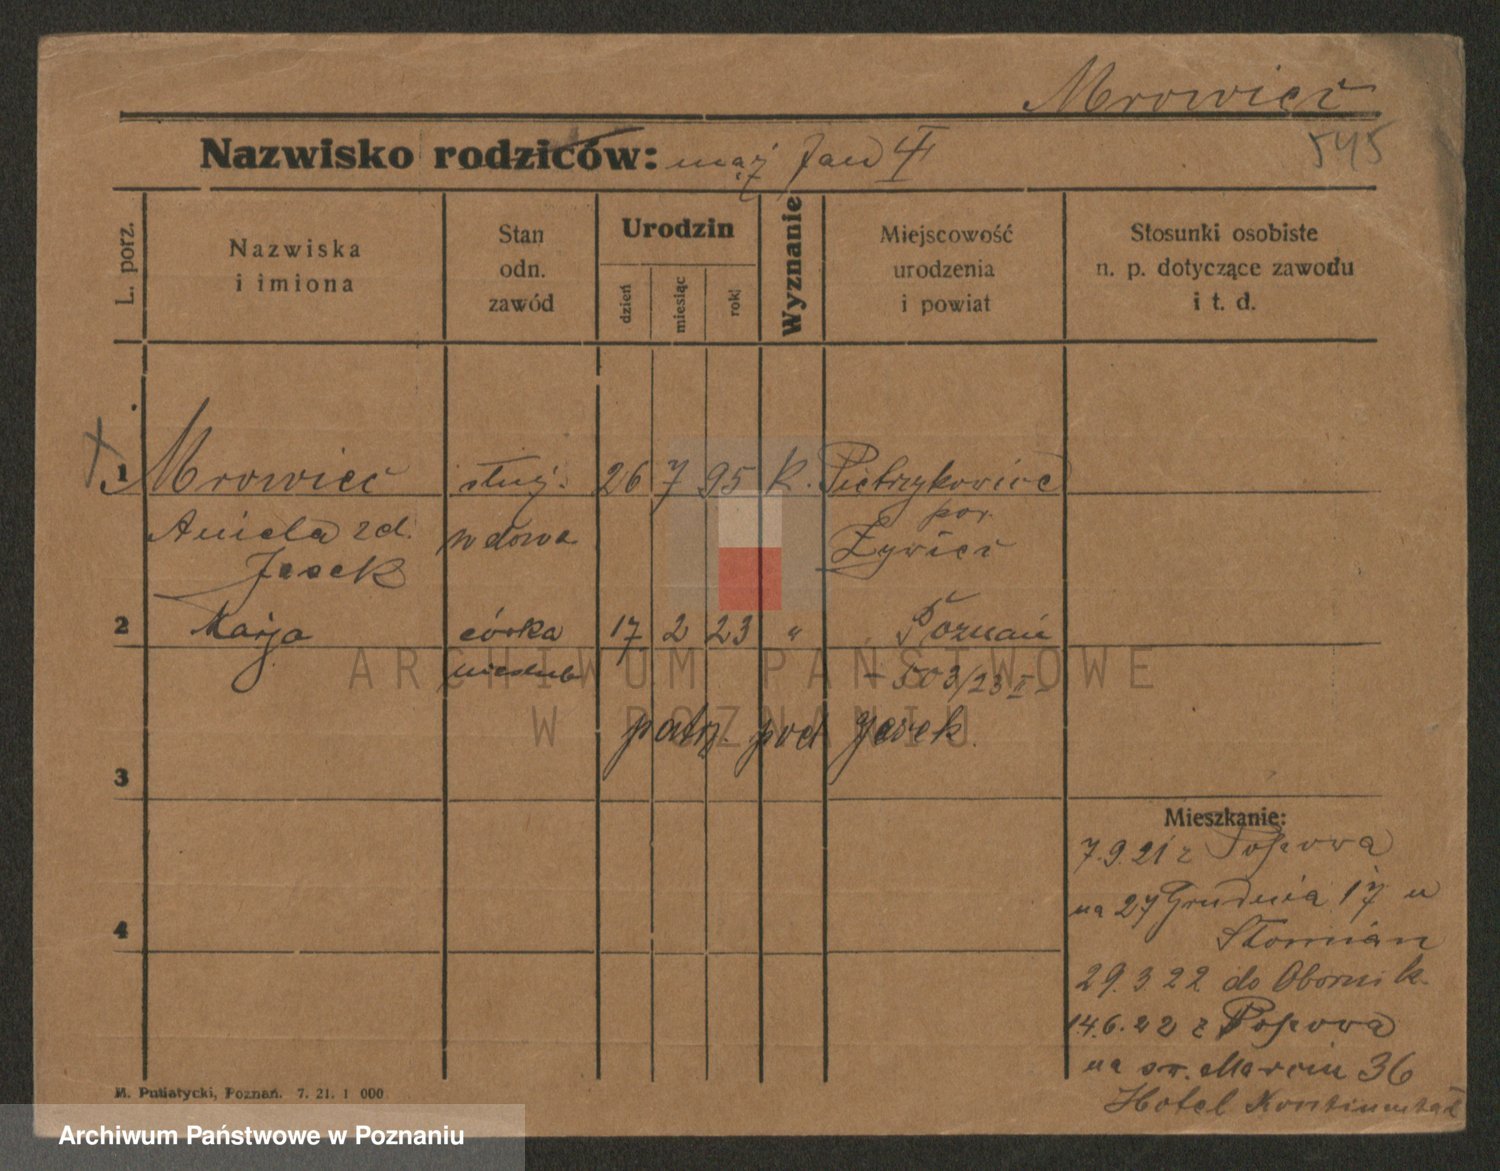 Mrowiec
545
Nazwisko rodziców: mąż Jan
L. porz.
Nazwiska
i imiona
Stan
odn.
zawód
Urodzin
dzień
miesiąc
rok
Wyznanie
Miejscowość
urodzenia
i powiat
Stosunki osobiste
n. p. dotyczące zawodu
i t. d.
1 Mrowiec służ. 26 7 95 K. Pietrzykowice
Aniela zd. wdowa pow.
Jasek Żywiec
2 Marja córka 17 2 23 " Poznań
nieślub 503/23 II
patrz pod Jasek.
3
4
Mieszkanie:
7.9.21 z
na 27 Grudnia 17 u
Słomian
29.3.22 do Obornik.
14.6.22 z
na św. Marcin 36
Hotel Kontinental
M. Putiatycki, Poznań. 7. 21. 1 000
ARCHIWUM PAŃSTWOWE
W POZNANIU
Archiwum Państwowe w Poznaniu